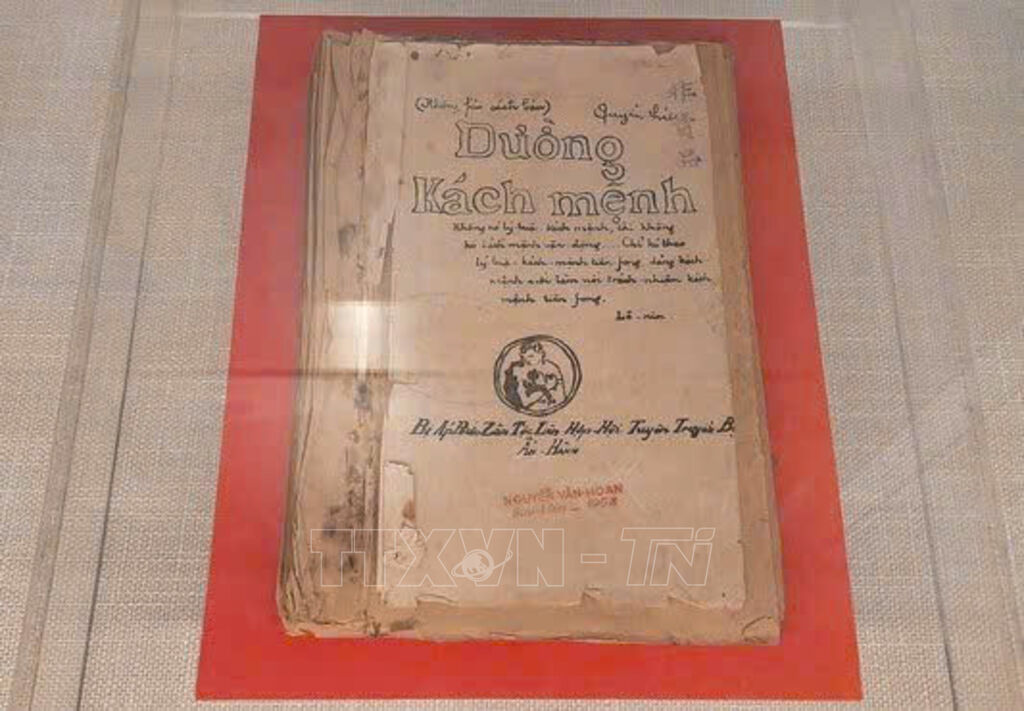 (Không fải sách bán) Quyển thứ
Đường
Kách mệnh
Không có lý luận kách mệnh, thì không
có kách mệnh vận động... Chỉ có theo
lý luận kách mệnh tiền fong, đảng kách
mệnh mới làm nổi trách nhiệm kách
mệnh tiền fong.
Lê-nin
Bị Áp Bức Zân Tộc Liên Hợp Hội Tuyên Truyền Bộ
Ấn-Hành
NGUYỄN VĂN-HOAN
1958
TTXVN-Tri